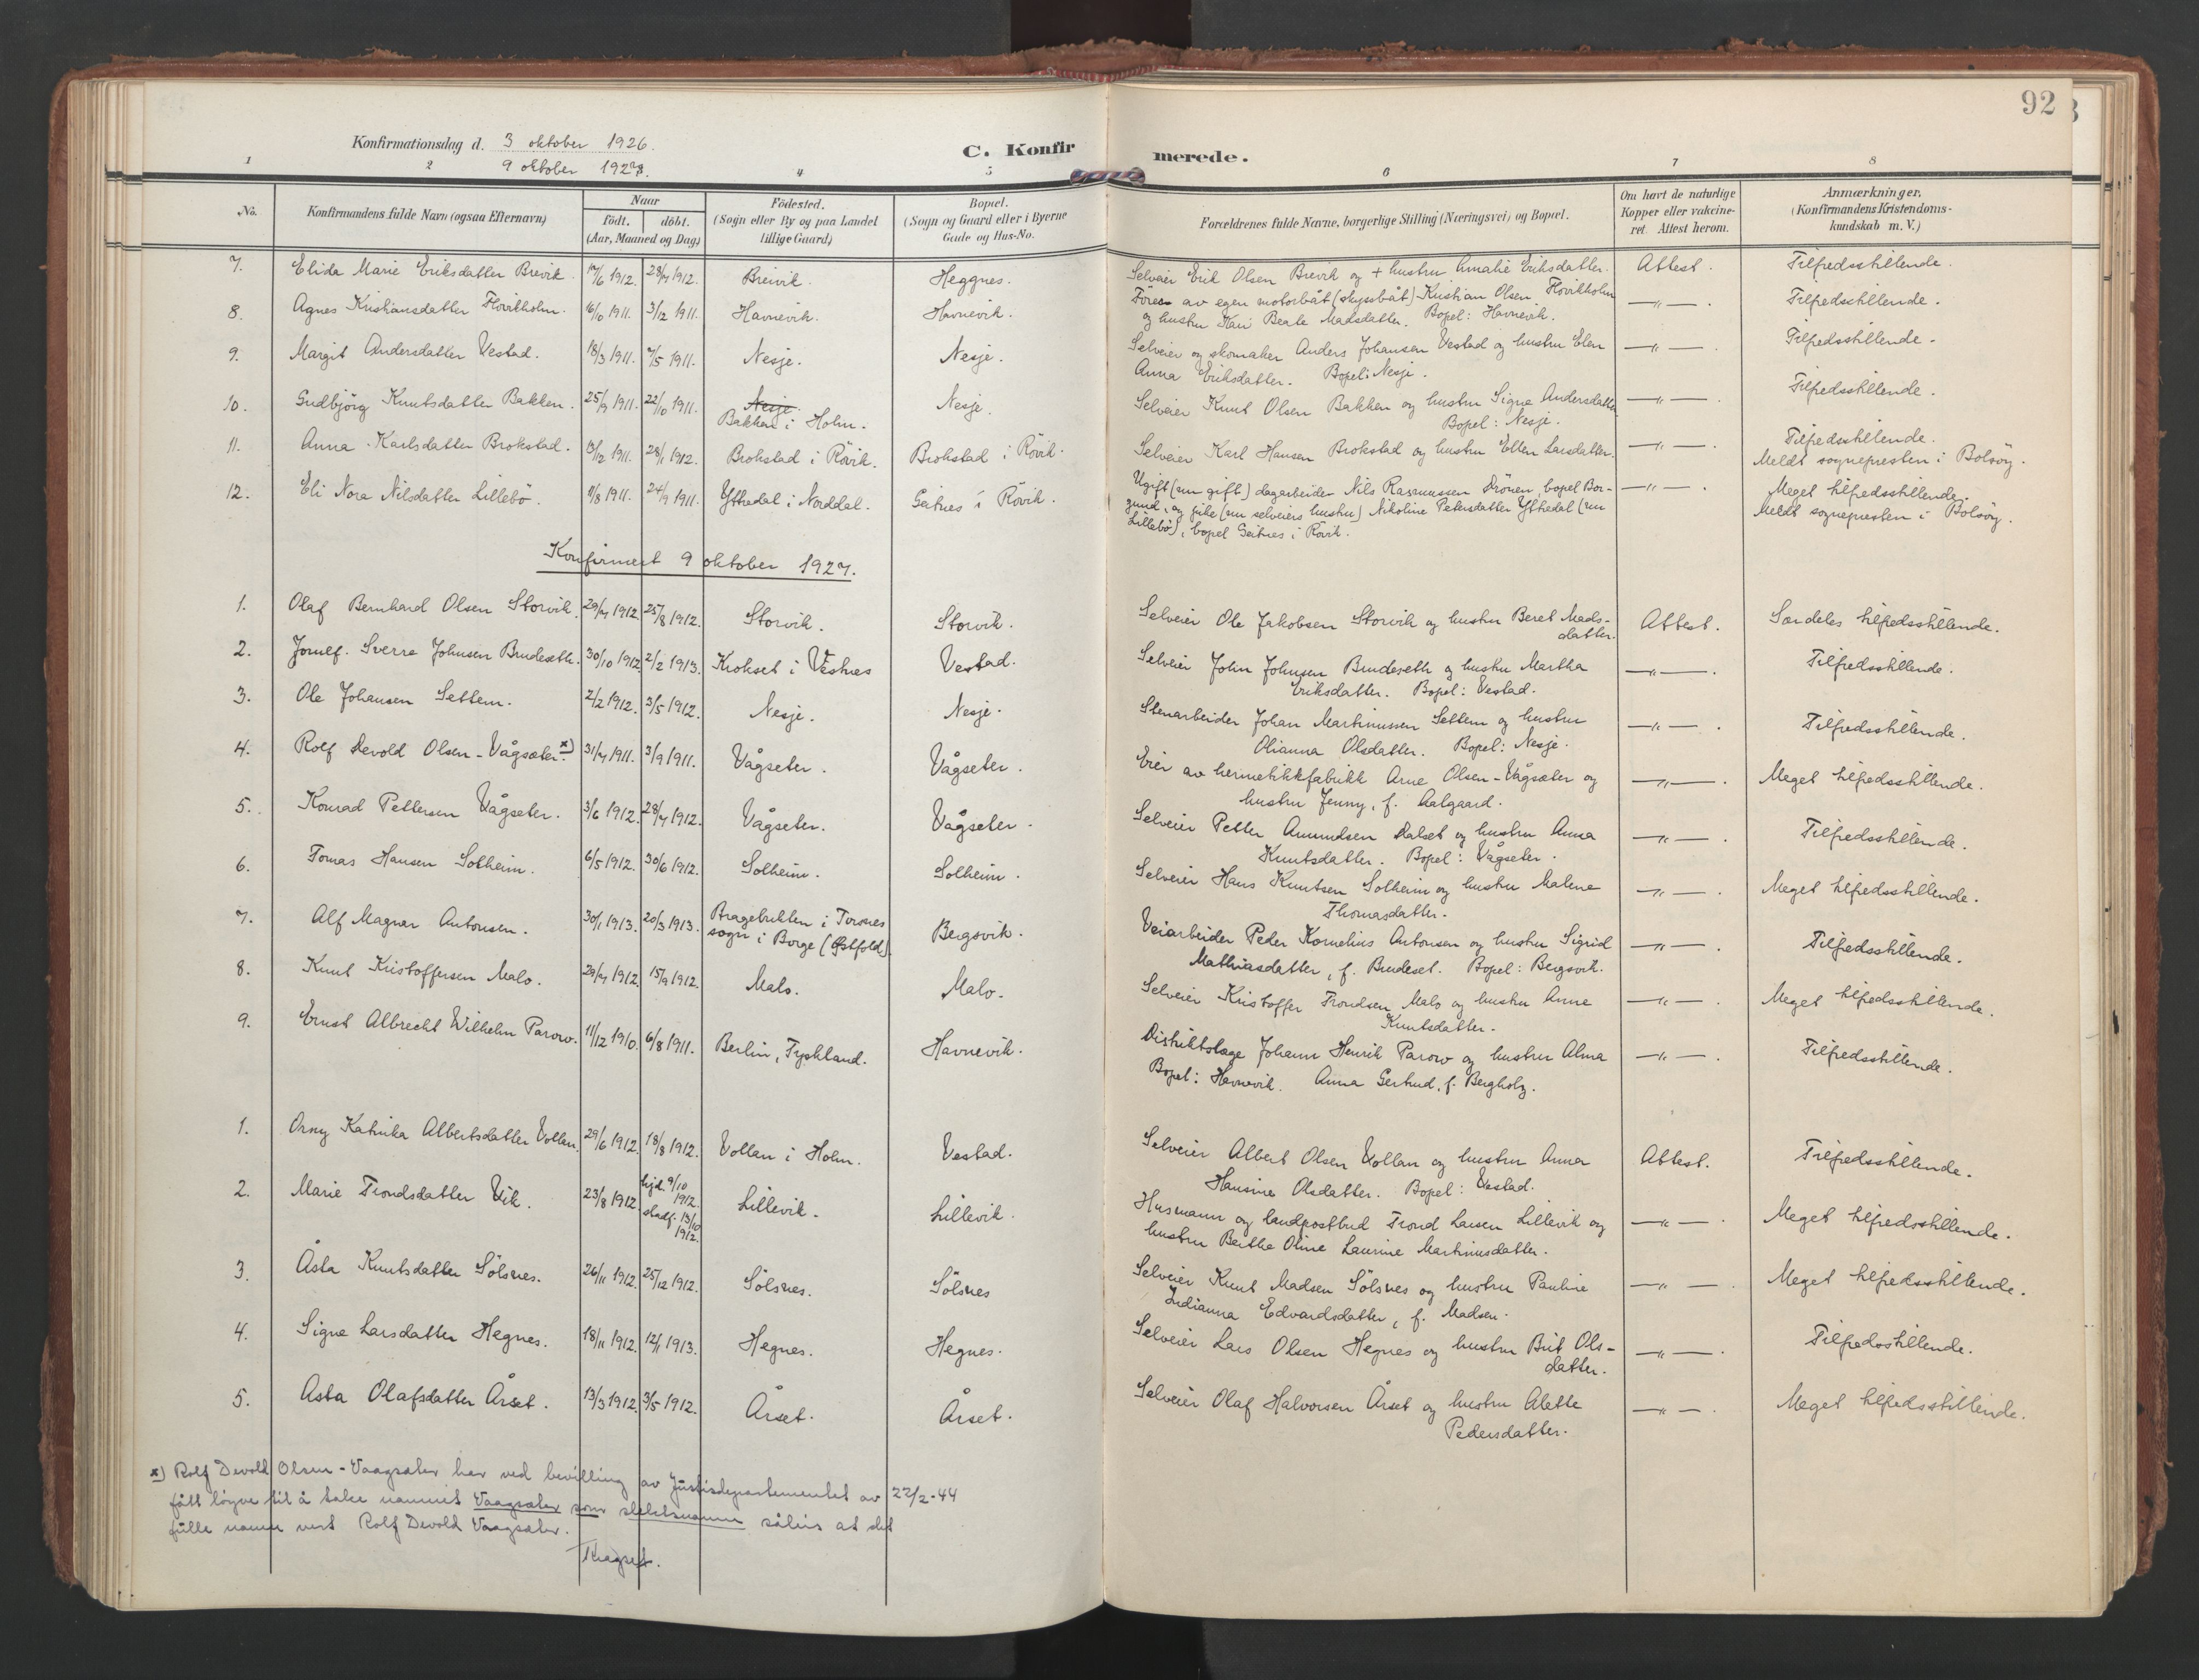 92
Konfirmationsdag d. 3 oktober 1926.
9 oktober 1927.
C. Konfirmerede.
1 2 4 5 6 7 8
No.
Konfirmandens fulde Navn (ogsaa Efternavn)
Naar
født. døbt.
(Aar, Maaned og Dag)
Fødested.
(Sogn eller By og paa Landet
tillige Gaard)
Bopæl.
(Sogn og Gaard eller i Byerne
Gade og Hus-No.
Forældrenes fulde Navne, borgerlige Stilling (Næringsvei) og Bopæl.
Om havt de naturlige
Kopper eller vakcine-
ret. Attest herom.
Anmærkninger.
(Konfirmandens Kristendoms-
kundskab m. V.)
7. Elida Marie Eriksdatter Brevik. 17/6 1912. 28/7 1912. Breivik. Heggnes. Selveier Erik Olsen Brevik og + hustru Amalie Eriksdatter. Attest. Tilfredsstillende.
8. Agnes Kristiansdatter Flovikholm. 16/10 1911. 3/12 1911. Havnevik. Havnevik. Fører av egen motorbåt (skyssbåt) Kristian Olsen Flovikholm —"— . Tilfredsstillende.
og hustru Kari Beate Madsdatter. Bopel: Havnevik.
9. Margit Andersdatter Vestad. 18/3 1911. 7/5 1911. Nesje. Nesje. Selveier og skomaker Anders Johansen Vestad og hustru Elen —"— . Tilfredsstillende.
Anna Eriksdatter. Bopel: Nesje.
10. Gudbjörg Knutsdatter Bakken. 25/9 1911. 22/10 1911. Nesje Nesje. Selveier Knut Olsen Bakken og hustru Signe Andersdatter —"— . Tilfredsstillende.
Bakken i Holm. Bopel: Nesje.
11. Anna Karlsdatter Brokstad. 13/12 1911. 28/1 1912. Brokstad i Rövik. Brokstad i Rövik. Selveier Karl Hansen Brokstad og hustru Ellen Larsdatter. —"— . Tilfredsstillende.
Meldt sognepresten i Bolsöy.
12. Eli Nora Nilsdatter Lillebö. 11/8 1911. 24/9 1911. Ytthedal i Norddal. Geitnes i Rövik. Ugift (nu gift) dagarbeider Nils Rasmussen Drönen, bopel Bor- —"— . Meget tilfredsstillende.
gund, og pike (nu selveiers hustru) Nikoline Petersdatter Ytthedal (nu Meldt sognepresten i Bolsöy.
Lillebö), bopel Geitnes i Rövik.
Konfirmert 9 oktober 1927.
1. Olaf Bernhard Olsen Storvik. 29/7 1912. 25/8 1912. Storvik. Storvik. Selveier Ole Jakobsen Storvik og hustru Beret Mads- Attest. Særdeles tilfredsstillende.
datter.
2. Jomlf. Sverre Johnsen Brudeseth. 30/10 1912. 2/2 1913. Krokset i Vestnes Vestad. Selveier John Johnsen Brudeseth og hustru Martha —"— . Tilfredsstillende.
Eriksdatter. Bopel: Vestad.
3. Ole Johansen Settem. 2/2 1912. 3/5 1912. Nesje. Nesje. Stenarbeider Johan Martinussen Settem og hustru —"— . Tilfredsstillende.
Olianna Olsdatter. Bopel: Nesje.
4. Rolf Devold Olsen-Vågsæter. x) 31/7 1911. 3/9 1911. Vågseter. Vågseter. Eier av hermetikkfabrikk Arne Olsen-Vågsæter og —"— . Meget tilfredsstillende.
hustru Jenny, f. Aalgaard.
5. Konrad Pettersen Vågseter. 3/6 1912. 28/7 1912. Vågseter. Vågseter. Selveier Petter Amundsen Dalset og hustru Anna —"— . Tilfredsstillende.
Knutsdatter. Bopel: Vågseter.
6. Tomas Hansen Solheim. 6/5 1912. 30/6 1912. Solheim. Solheim. Selveier Hans Knutsen Solheim og hustru Malene —"— . Meget tilfredsstillende.
Thomasdatter.
7. Alf Magnar Antonsen. 30/1 1913. 20/3 1913. Bragebukten i Torsnes Bergsvik. Veiarbeider Peder Kornelius Antonsen og hustru Sigrid —"— . Tilfredsstillende.
sogn i Borge (Østfold). Mathiasdatter, f. Brudeset. Bopel: Bergsvik.
8. Knut Kristoffersen Malo. 29/7 1912. 15/9 1912. Malo. Malo. Selveier Kristoffer Trondsen Malo og hustru Anne —"— . Meget tilfredsstillende.
Knutsdatter.
9. Ernst Albrecht Wilhelm Parow. 11/12 1910. 6/8 1911. Berlin, Tyskland. Havnevik. Distriktslæge Johann Henrik Parow og hustru Alma —"— . Tilfredsstillende.
Bopel: Havnevik. Anna Gertrud, f. Bergholz.
1. Orny Katinka Albertsdatter Vollan. 29/6 1912. 18/8 1912. Vollan i Holm. Vestad. Selveier Albert Olsen Vollan og hustru Anna Attest. Tilfredsstillende.
Hansine Olsdatter. Bopel: Vestad.
2. Marie Trondsdatter Vik. 23/8 1912. hjd. 9/10 1912. stadf. 13/10 1912. Lillevik. Lillevik. Husmann og landpostbud Trond Larsen Lillevik og —"— . Meget tilfredsstillende.
hustru Berthe Oline Laurine Martinusdatter.
3. Åsta Knutsdatter Sölsnes. 26/11 1912. 25/12 1912. Sölsnes. Sölsnes Selveier Knut Madsen Sölsnes og hustru Pauline —"— . Meget tilfredsstillende.
Indianna Edvardsdatter, f. Madsen.
4. Signe Larsdatter Hegnes. 18/11 1912. 12/1 1913. Hegnes. Hegnes. Selveier Lars Olsen Hegnes og hustru Brit Ols- —"— . Tilfredsstillende.
datter.
5. Asta Olafsdatter Årset. 13/3 1912. 3/5 1912. Årset. Årset. Selveier Olaf Halvorsen Årset og hustru Alette —"— . Meget tilfredsstillende.
Pedersdatter.
x) Rolf Devold Olsen-Vaagsæter har ved bevilling av Justisdepartementet av 22/2-44
fått løyve til å take namnet Vaagsæter som slektsnamn såleis at det
fulle namn vert Rolf Devold Vaagsæter.